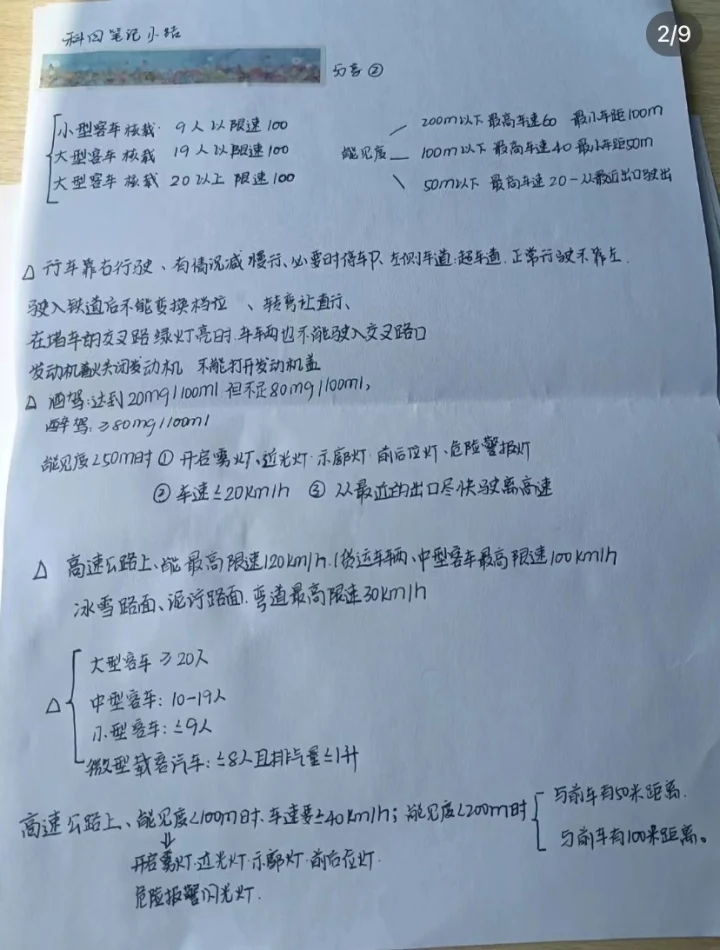 2/9
科四笔记小结
②
小型客车核载 9人以 限速100
大型客车 核载 19人以 限速100
大型客车 核载 20以上 限速100
能见度
200m以下 最高车速60 最小车距100m
100m以下 最高车速40 最小车距50m
50m以下 最高车速20-从最近出口驶出
△ 行车靠右行驶、有情况减慢行、必要时停车P、左侧车道:超车道.正常行驶不靠左.
驶入铁道后不能变换档位 、转弯让直行、
在堵车的交叉路 绿灯亮时.车车两也不能驶入交叉路口
发动机着火关闭发动机 不能打开发动机盖
△ 酒驾:达到20mg/100ml 但不足80mg/100ml,
醉驾:≥80mg/100ml
能见度<50m时 ① 开启雾灯、近光灯·示廓灯·前后位灯、危险警报灯
② 车速≤20km/h ③ 从最近的出口尽快驶离高速
△ 高速公路上、能最高限速120km/h.(货运车辆、中型客车最高限速100km/h
冰雪路面、泥泞路面.弯道最高限速30km/h
△
大型客车 ≥20人
中型客车:10-19人
小型客车:≤9人
微型载客汽车:≤8人且排气量≤1升
高速公路上、能见度<100m时.车速要≤40km/h;能见度<200m时
与前车有50米距离.
与前车有100米距离。
⇓
开启雾灯.近光灯·示廓灯·前后位灯.
危险报警闪光灯.